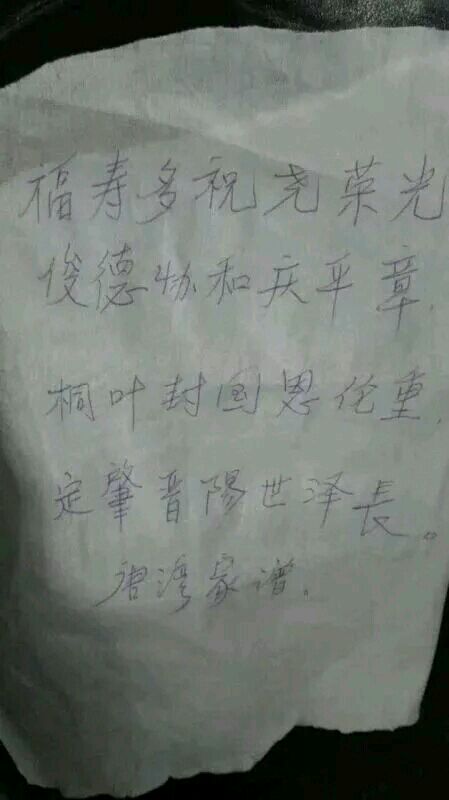 福寿多祝尧荣光
俊德协和庆平章.
桐叶封国恩伦重.
定肇晋陽世泽長。
唐湾家谱.